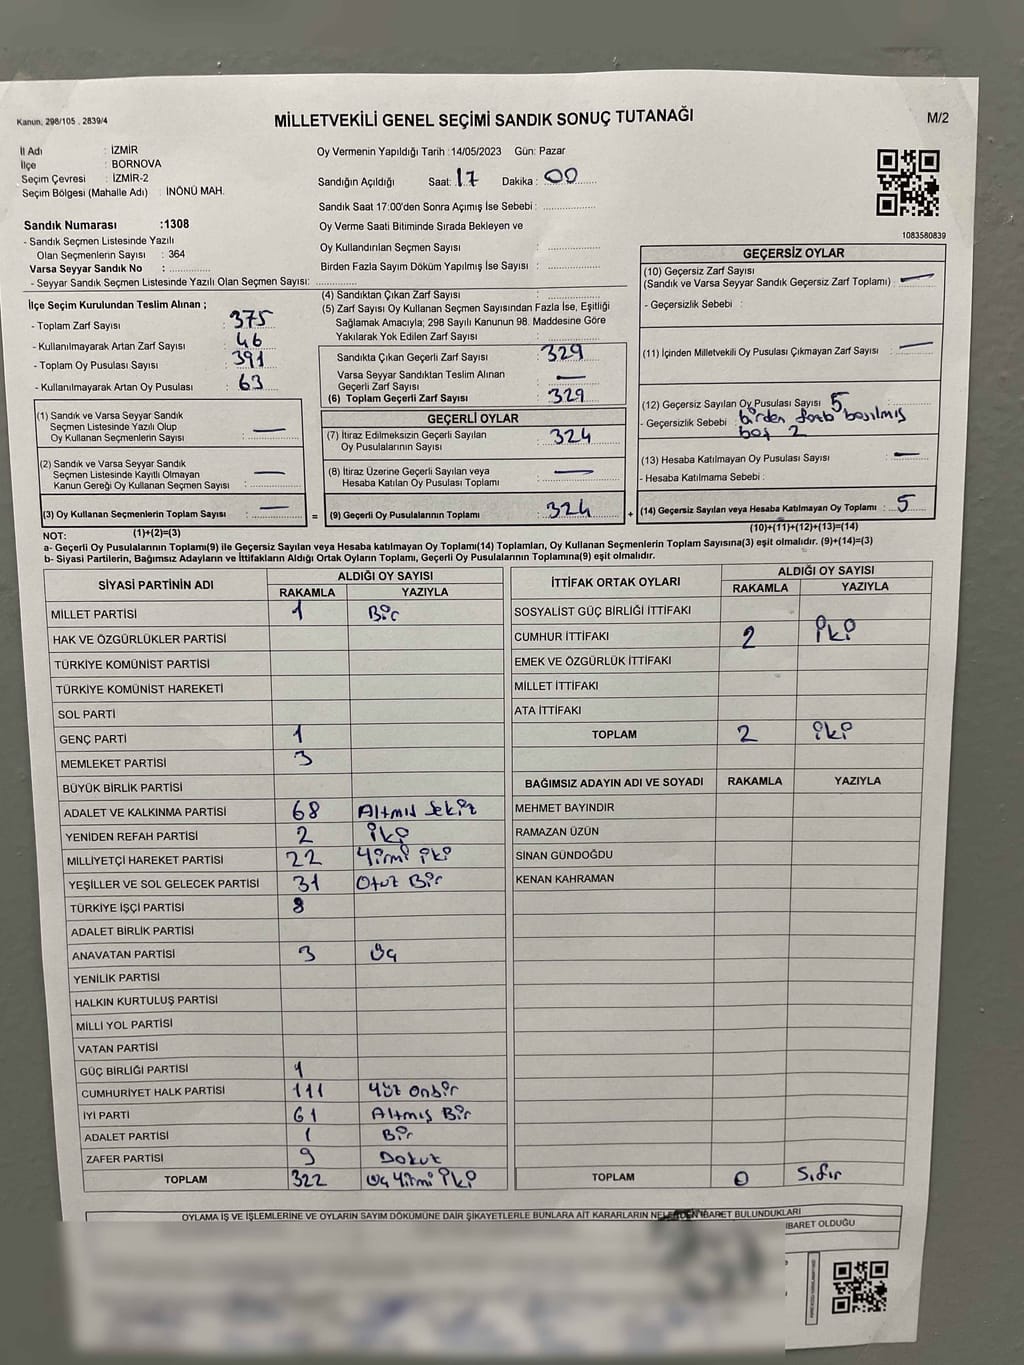 Kanun, 298/105 , 2839/4
MİLLETVEKİLİ GENEL SEÇİMİ SANDIK SONUÇ TUTANAĞI
M/2
İl Adı : İZMİR
İlçe : BORNOVA
Seçim Çevresi : İZMİR-2
Seçim Bölgesi (Mahalle Adı) : İNÖNÜ MAH.
Oy Vermenin Yapıldığı Tarih :14/05/2023 Gün: Pazar
Sandığın Açıldığı Saat: 17 Dakika : 00
Sandık Saat 17:00'den Sonra Açımış İse Sebebi :
Oy Verme Saati Bitiminde Sırada Bekleyen ve
Oy Kullandırılan Seçmen Sayısı :
Birden Fazla Sayım Döküm Yapılmış İse Sayısı :
1083580839
Sandık Numarası :1308
- Sandık Seçmen Listesinde Yazılı
Olan Seçmenlerin Sayısı : 364
Varsa Seyyar Sandık No :
- Seyyar Sandık Seçmen Listesinde Yazılı Olan Seçmen Sayısı:
İlçe Seçim Kurulundan Teslim Alınan ;
- Toplam Zarf Sayısı : 375
- Kullanılmayarak Artan Zarf Sayısı : 46
- Toplam Oy Pusulası Sayısı : 391
- Kullanılmayarak Artan Oy Pusulası : 63
(1) Sandık ve Varsa Seyyar Sandık
Seçmen Listesinde Yazılı Olup
Oy Kullanan Seçmenlerin Sayısı : —
(2) Sandık ve Varsa Seyyar Sandık
Seçmen Listesinde Kayıtlı Olmayan
Kanun Gereği Oy Kullanan Seçmen Sayısı : —
(3) Oy Kullanan Seçmenlerin Toplam Sayısı : —
(4) Sandıktan Çıkan Zarf Sayısı :
(5) Zarf Sayısı Oy Kullanan Seçmen Sayısından Fazla İse, Eşitliği
Sağlamak Amacıyla; 298 Sayılı Kanunun 98. Maddesine Göre
Yakılarak Yok Edilen Zarf Sayısı :
Sandıkta Çıkan Geçerli Zarf Sayısı : 329
Varsa Seyyar Sandıktan Teslim Alınan
Geçerli Zarf Sayısı : —
(6) Toplam Geçerli Zarf Sayısı : 329
GEÇERLİ OYLAR
(7) İtiraz Edilmeksizin Geçerli Sayılan
Oy Pusulalarının Sayısı : 324
(8) İtiraz Üzerine Geçerli Sayılan veya
Hesaba Katılan Oy Pusulası Toplamı : —
= (9) Geçerli Oy Pusulalarının Toplamı : 324 +
GEÇERSİZ OYLAR
(10) Geçersiz Zarf Sayısı
(Sandık ve Varsa Seyyar Sandık Geçersiz Zarf Toplamı) : —
- Geçersizlik Sebebi :
(11) İçinden Milletvekili Oy Pusulası Çıkmayan Zarf Sayısı : —
(12) Geçersiz Sayılan Oy Pusulası Sayısı : 5
- Geçersizlik Sebebi : birden fazla basılmış
boş 2
(13) Hesaba Katılmayan Oy Pusulası Sayısı : —
- Hesaba Katılmama Sebebi :
(14) Geçersiz Sayılan veya Hesaba Katılmayan Oy Toplamı : 5
NOT: (1)+(2)=(3)
(10)+(11)+(12)+(13)=(14)
a- Geçerli Oy Pusulalarının Toplamı(9) ile Geçersiz Sayılan veya Hesaba katılmayan Oy Toplamı(14) Toplamları, Oy Kullanan Seçmenlerin Toplam Sayısına(3) eşit olmalıdır. (9)+(14)=(3)
b- Siyasi Partilerin, Bağımsız Adayların ve İttifakların Aldığı Ortak Oyların Toplamı, Geçerli Oy Pusulalarının Toplamına(9) eşit olmalıdır.
SİYASİ PARTİNİN ADI ALDIĞI OY SAYISI
RAKAMLA YAZIYLA
MİLLET PARTİSİ 1 Bir
HAK VE ÖZGÜRLÜKLER PARTİSİ
TÜRKİYE KOMÜNİST PARTİSİ
TÜRKİYE KOMÜNİST HAREKETİ
SOL PARTİ
GENÇ PARTİ 1
MEMLEKET PARTİSİ 3
BÜYÜK BİRLİK PARTİSİ
ADALET VE KALKINMA PARTİSİ 68 Altmış Sekiz
YENİDEN REFAH PARTİSİ 2 iki
MİLLİYETÇİ HAREKET PARTİSİ 22 Yirmi iki
YEŞİLLER VE SOL GELECEK PARTİSİ 31 Otuz Bir
TÜRKİYE İŞÇİ PARTİSİ 8
ADALET BİRLİK PARTİSİ
ANAVATAN PARTİSİ 3 Üç
YENİLİK PARTİSİ
HALKIN KURTULUŞ PARTİSİ
MİLLİ YOL PARTİSİ
VATAN PARTİSİ
GÜÇ BİRLİĞİ PARTİSİ 1
CUMHURİYET HALK PARTİSİ 111 Yüz Onbir
İYİ PARTİ 61 Altmış Bir
ADALET PARTİSİ 1 Bir
ZAFER PARTİSİ 9 Dokuz
TOPLAM 322 Üç Yirmi iki
İTTİFAK ORTAK OYLARI ALDIĞI OY SAYISI
RAKAMLA YAZIYLA
SOSYALİST GÜÇ BİRLİĞİ İTTİFAKI
CUMHUR İTTİFAKI 2 iki
EMEK VE ÖZGÜRLÜK İTTİFAKI
MİLLET İTTİFAKI
ATA İTTİFAKI
TOPLAM 2 iki
BAĞIMSIZ ADAYIN ADI VE SOYADI RAKAMLA YAZIYLA
MEHMET BAYINDIR
RAMAZAN ÜZÜN
SİNAN GÜNDOĞDU
KENAN KAHRAMAN
TOPLAM 0 Sıfır
OYLAMA İŞ VE İŞLEMLERİNE VE OYLARIN SAYIM DÖKÜMÜNE DAİR ŞİKAYETLERLE BUNLARA AİT KARARLARIN NELERDEN İBARET BULUNDUKLARI
İBARET OLDUĞU